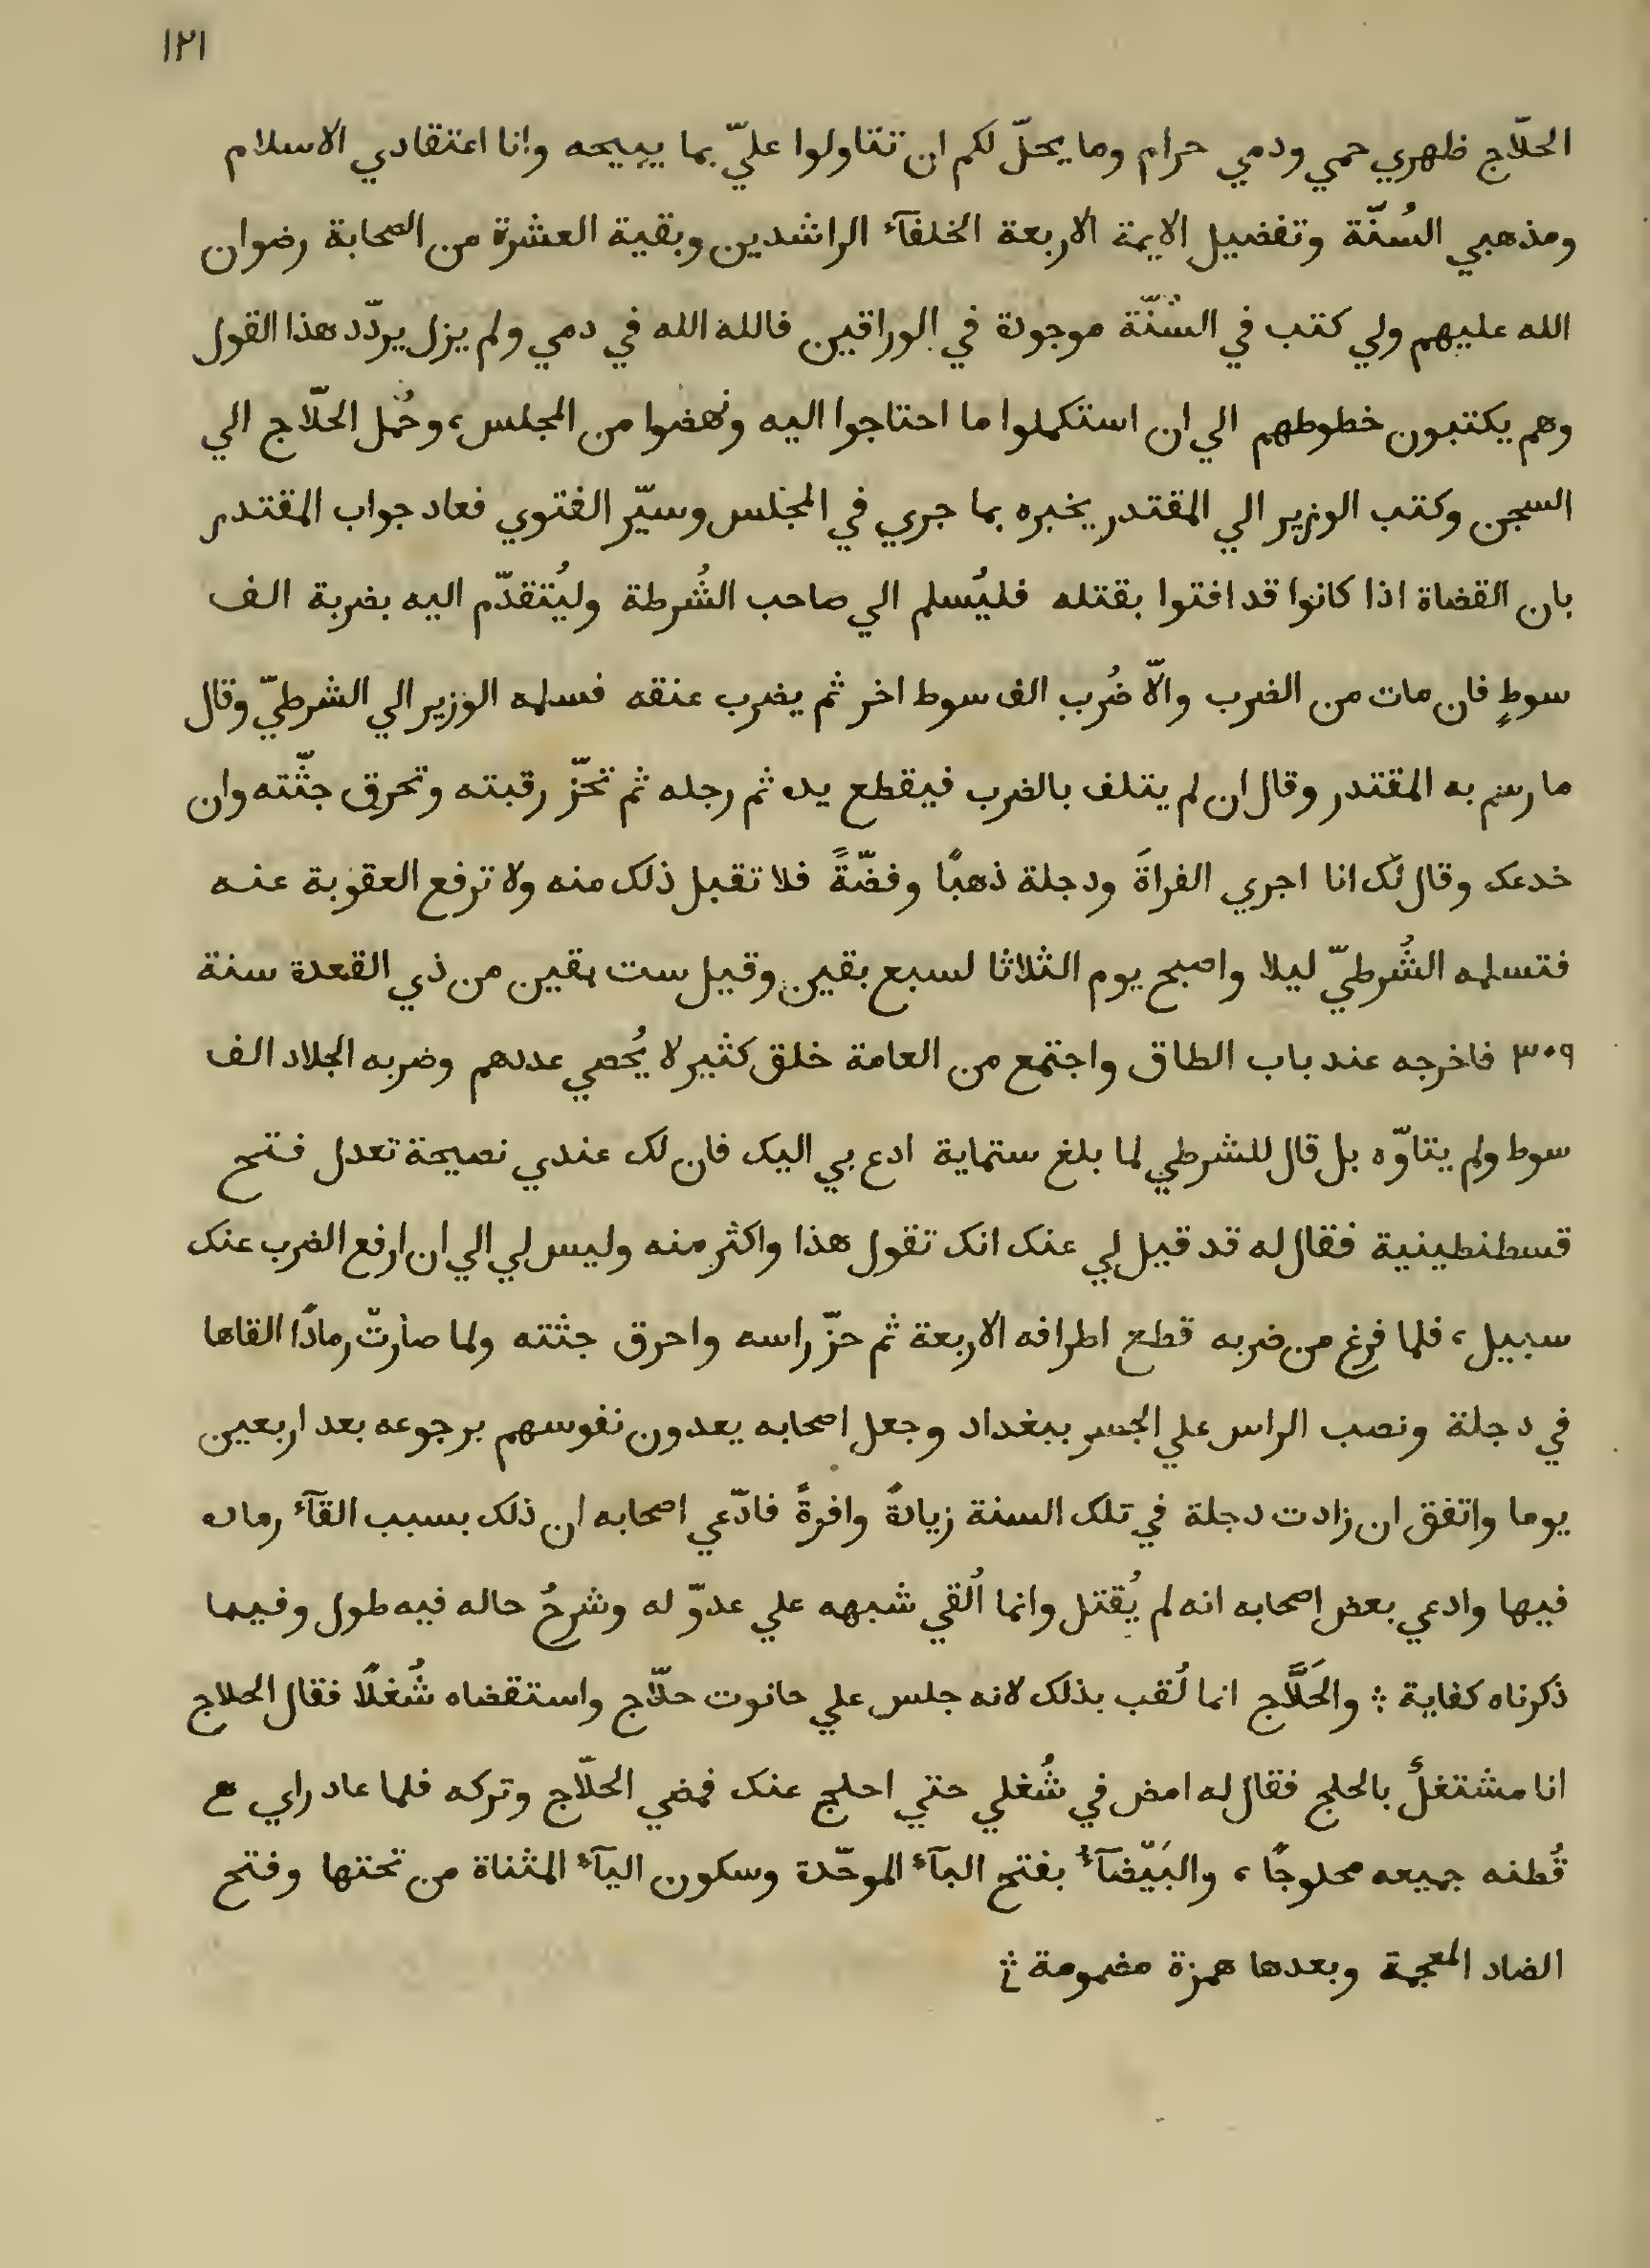 ١٢١
الحلّاج ظهري حمي ودمي حرام وما يحلّ لكم ان تتاولوا عليّ بما يبيحه وانا اعتقادي الاسلام
ومذهبي السُنّة وتفضيل الايمة الاربعة الخلفآء الراشدين وبقية العشرة من الصحابة رضوان
الله عليهم ولي كتب في السُنّة موجودة في الوراقين فالله الله في دمي ولم يزل يردّد هذا القول
وهم يكتبون خطوطهم الي ان استكملوا ما احتاجوا اليه ونهضوا من المجلس، وحُمل الحلّاج الي
السجن وكتب الوزير الي المقتدر يخبره بما جري في المجلس وسيّر الفتوي فعاد جواب المقتدر
بان القضاة اذا كانوا قد افتوا بقتله فليُسلم الي صاحب الشُرطة وليُتقدّم اليه بضربة الف
سوطٍ فان مات من الضرب والّا ضُرب الف سوط اخر ثم يضرب عنقه فسلمه الوزير الي الشرطيّ وقال
ما رسم به المقتدر وقال ان لم يتلف بالضرب فيقطع يده ثم رجله ثم تحزّ رقبته وتحرق جثّته وان
خدعك وقال لك انا اجري الفراةَ ودجلة ذهبًا وفضّةً فلا تقبل ذلك منه ولا ترفع العقوبة عنه
فتسلمه الشُرطيّ ليلا واصبح يوم الثلاثا لسبع بقين وقيل ست بقين من ذي القعدة سنة
٣٠٩ فاخرجه عند باب الطاق واجتمع من العامة خلق كثير لا يُحصي عددهم وضربه الجلاد الف
سوط ولم يتاوّه بل قال للشرطي لما بلغ ستماية ادع بي اليك فان لك عندي نصيحة تعدل فتح
قسطنطينية فقال له قد قيل لي عنك انك تقول هذا واكثر منه وليس لي الي ان ارفع الضرب عنك
سبيل، فلما فرغ من ضربه قطع اطرافه الاربعة ثم حزّ راسه واحرق جثته ولما صارتْ رمادًا القاها
في دجلة ونصب الراس علي الجسر ببغداد وجعل اصحابه يعدون نفوسهم برجوعه بعد اربعين
يوما واتفق ان زادت دجلة في تلك السنة زيادةً وافرةً فادّعي اصحابه ان ذلك بسبب القآء رماده
فيها وادعي بعض اصحابه انه لم يُقتل وانما اُلقي شبهه علي عدوّ له وشرحُ حاله فيه طول وفيما
ذكرناه كفاية ؛ والحَلَّاج انما لُقب بذلك لانه جلس علي حانوت حلّاج واستقضاه شُغلًا فقال الحلاج
انا مشتغلٌ بالحلج فقال له امض في شُغلي حتي احلج عنك فمضي الحلّاج وتركه فلما عاد راي
قُطنه جميعه محلوجًا، والبَيْضآءُ بفتح البآء الموحّدة وسكون اليآء المثناة من تحتها وفتح
الضاد المعجمة وبعدها همزة مضمومة